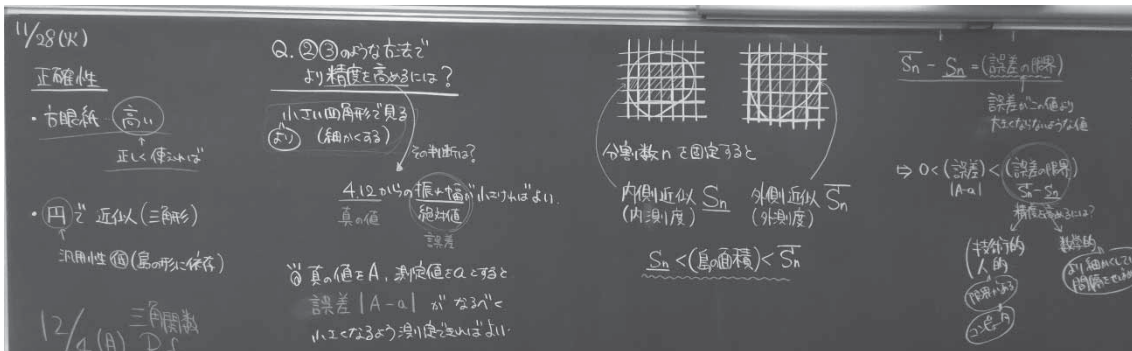 11/28(火)
正確性
・方眼紙 高い
正しく使えれば
・円で近似(三角形)
汎用性 低(島の形に依存)
12/4(月) 三角関数
Q.②③のような方法で
より精度を高めるには?
小さい四角形で見る
より (細かくする)
その判断は?
4.12からの振れ幅が小さければよい.
真の値 絶対値
誤差
真の値をA, 測定値をaとすると
誤差 |A-a| がなるべく
小さくなるよう測定できればよい.
分割数nを固定すると
内側近似 Sn 外側近似 Sn
(内測度) (外測度)
Sn<(島の面積)<Sn
Sn - Sn = (誤差の限界)
誤差がこの値より
大きくならないような値
⇒ 0<(誤差)<(誤差の限界)
|A-a| Sn-Sn
精度を高めるには?
技術的 数学的
人的
限界がある
コンピュータ
より細かくして